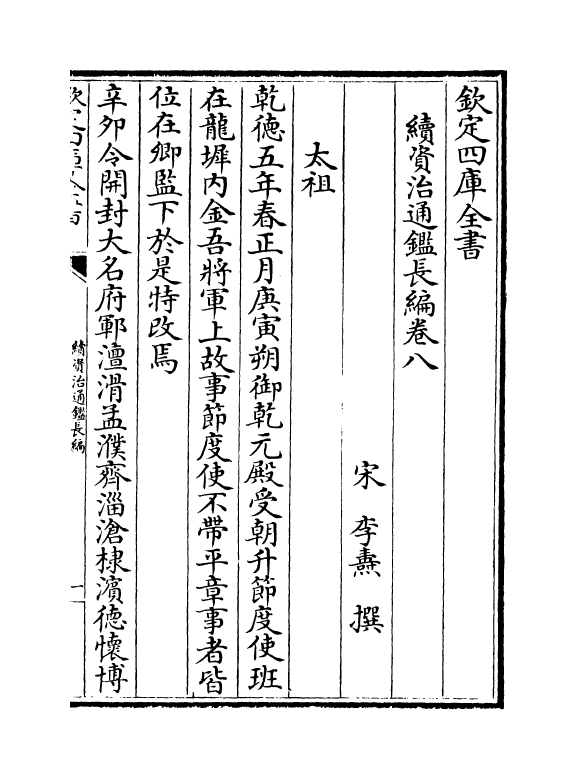 欽定四庫全書
續資治通鑑長編卷八
宋 李燾 撰
太祖
乾德五年春正月庚寅朔御乾元殿受朝升節度使班
在龍墀内金吾將軍上故事節度使不帶平章事者皆
位在卿監下於是特改焉
辛卯令開封大名府鄆澶滑孟濮齊淄滄棣濱德懷博
續資治通鑑長編
一